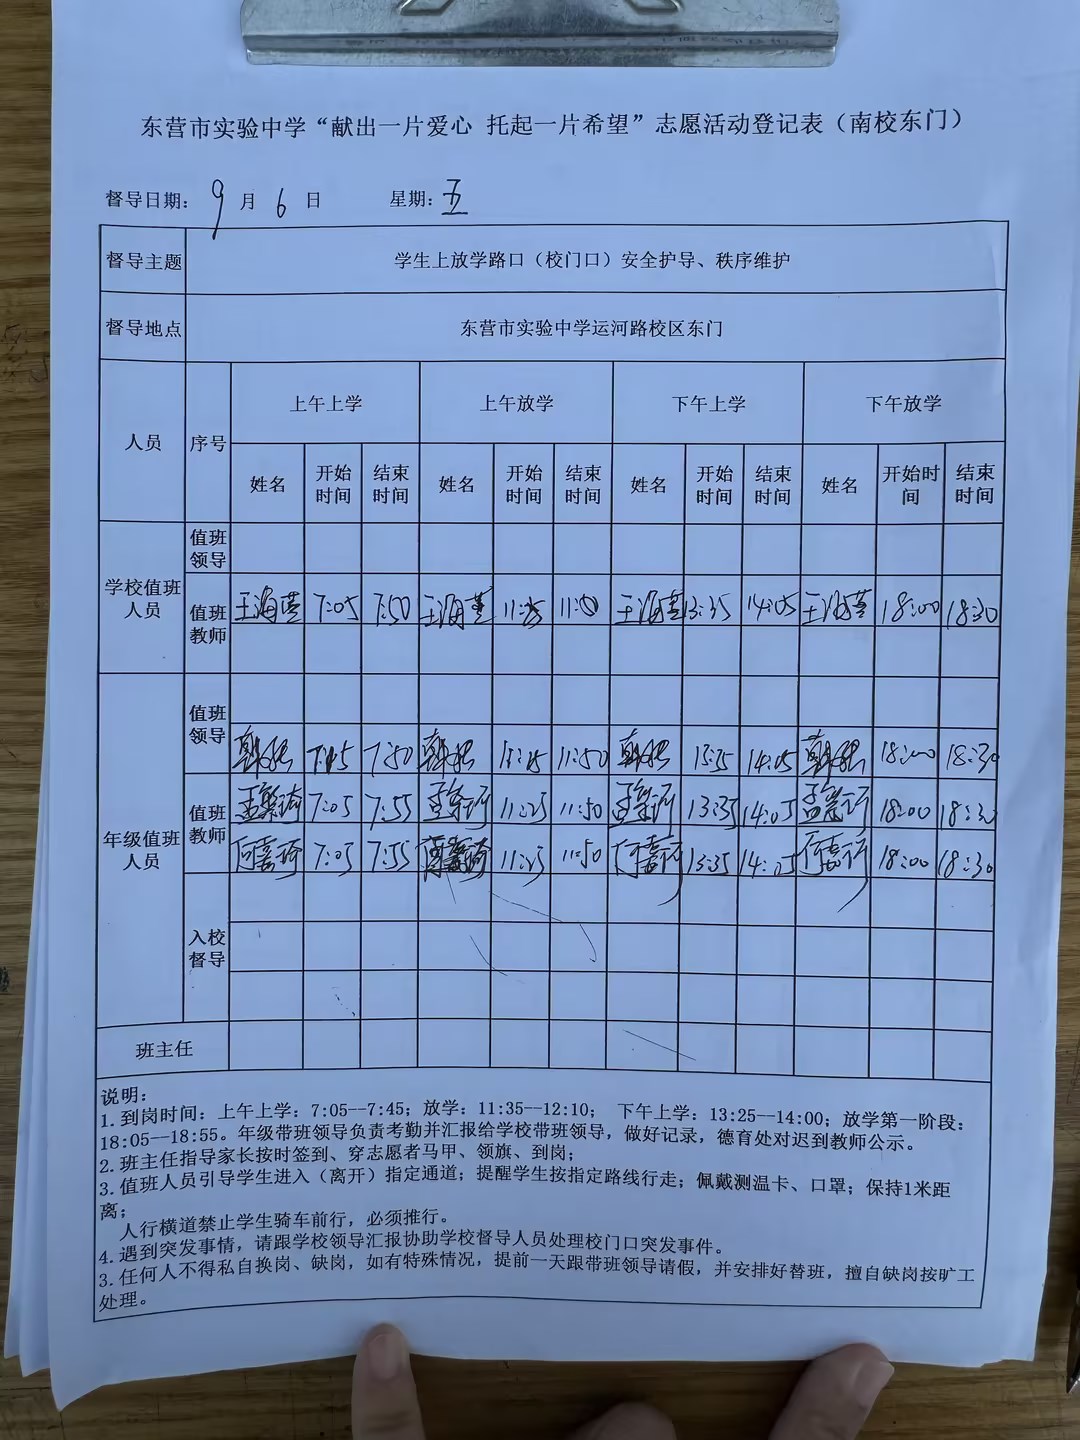 东营市实验中学“献出一片爱心 托起一片希望”志愿活动登记表（南校东门）
督导日期： 9 月 6 日 星期：五
督导主题 学生上放学路口（校门口）安全护导、秩序维护
督导地点 东营市实验中学运河路校区东门
人员 序号 上午上学 上午放学 下午上学 下午放学
姓名 开始时间 结束时间 姓名 开始时间 结束时间 姓名 开始时间 结束时间 姓名 开始时间 结束时间
学校值班人员 值班领导
值班教师 王海莲 7:05 7:50 王海莲 王海莲 13:35 14:05 王海莲 18:00 18:30
年级值班人员 值班领导
7:50 11:50 13:35 14:05 18:00 18:30
值班教师 7:05 7:55 11:25 11:50 13:35 14:05 18:00
7:05 7:55 11:25 11:50 13:35 14:05 18:00 18:30
入校督导
班主任
说明：
1.到岗时间：上午上学：7:05--7:45；放学：11:35--12:10； 下午上学：13:25--14:00；放学第一阶段：
18:05--18:55。年级带班领导负责考勤并汇报给学校带班领导，做好记录，德育处对迟到教师公示。
2.班主任指导家长按时签到、穿志愿者马甲、领旗、到岗；
3.值班人员引导学生进入（离开）指定通道；提醒学生按指定路线行走；佩戴测温卡、口罩；保持1米距
离；
人行横道禁止学生骑车前行，必须推行。
4.遇到突发事情，请跟学校领导汇报协助学校督导人员处理校门口突发事件。
3.任何人不得私自换岗、缺岗，如有特殊情况，提前一天跟带班领导请假，并安排好替班，擅自缺岗按旷工
处理。